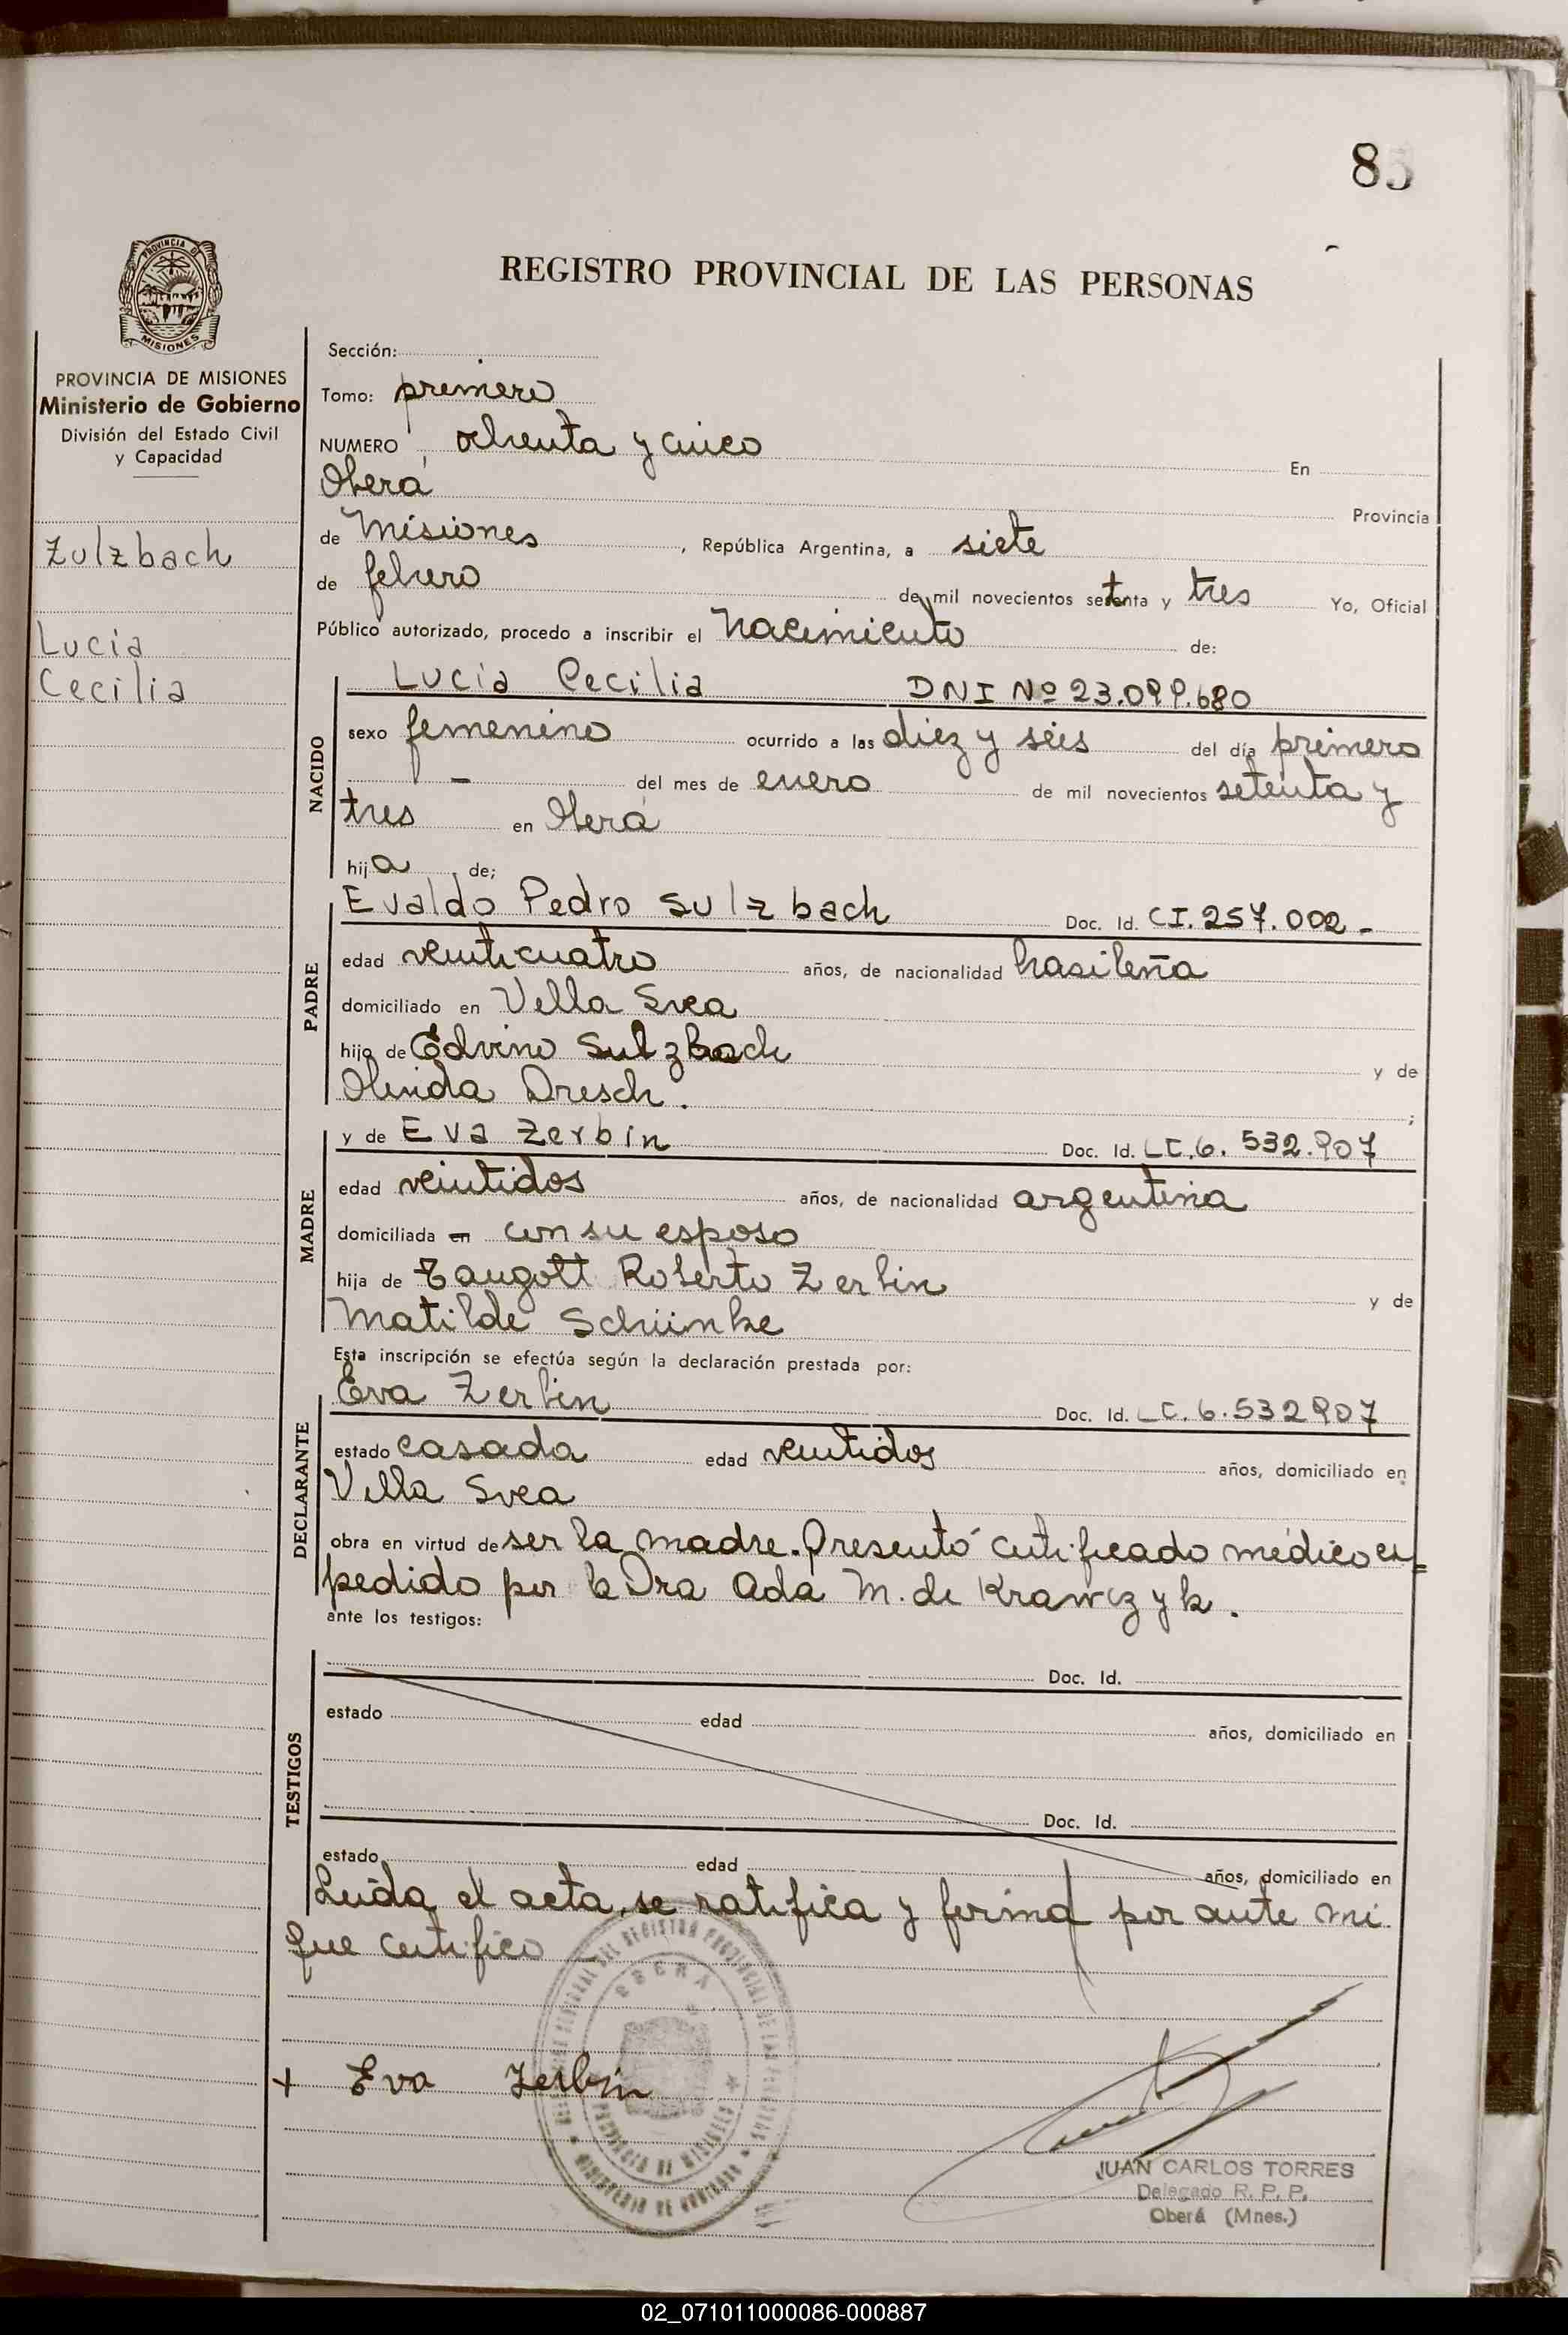 85
REGISTRO PROVINCIAL DE LAS PERSONAS
PROVINCIA DE MISIONES
PROVINCIA DE MISIONES
Ministerio de Gobierno
División del Estado Civil
y Capacidad
Zulzbach
Lucia
Cecilia
Sección:
Tomo: primero
NUMERO ochenta y cinco En
Oberá Provincia
de Misiones, República Argentina, a siete
de febrero de mil novecientos setenta y tres Yo, Oficial
Público autorizado, procedo a inscribir el Nacimiento de:
NACIDO
Lucía Cecilia DNI Nº 23.099.680
sexo femenino ocurrido a las diez y seis del día primero
- del mes de enero de mil novecientos setenta y
tres en Oberá
hija de;
PADRE
Evaldo Pedro Sulzbach Doc. Id. CI. 257.002 -
edad veinticuatro años, de nacionalidad brasileña
domiciliado en Villa Svea
hijo de Edvino Sulzbach y de
Olinda Dresch. ;
MADRE
y de Eva Zerbin Doc. Id. LC. 6. 532.907
edad veintidos años, de nacionalidad argentina
domiciliada en con su esposo
hija de Taugott Roberto Zerbin y de
Matilde Schiimke
Esta inscripción se efectúa según la declaración prestada por:
DECLARANTE
Eva Zerbin Doc. Id. LC. 6.532907
estado casada edad veintidos años, domiciliado en
Villa Svea
obra en virtud de ser la madre. Presentó certificado médico ex=
pedido por la Dra Ada M. de Krawczyk.
ante los testigos:
TESTIGOS
Doc. Id.
estado edad años, domiciliado en
Doc. Id.
estado edad años, domiciliado en
Leida el acta, se ratifica y firma por ante mi
que certifico
OBERA
PROVINCIA DE MISIONES
MINISTERIO DE GOBIERNO
+ Eva Zerbin
JUAN CARLOS TORRES
Delegado R. P. P.
Oberá (Mnes.)
02_071011000086-000887